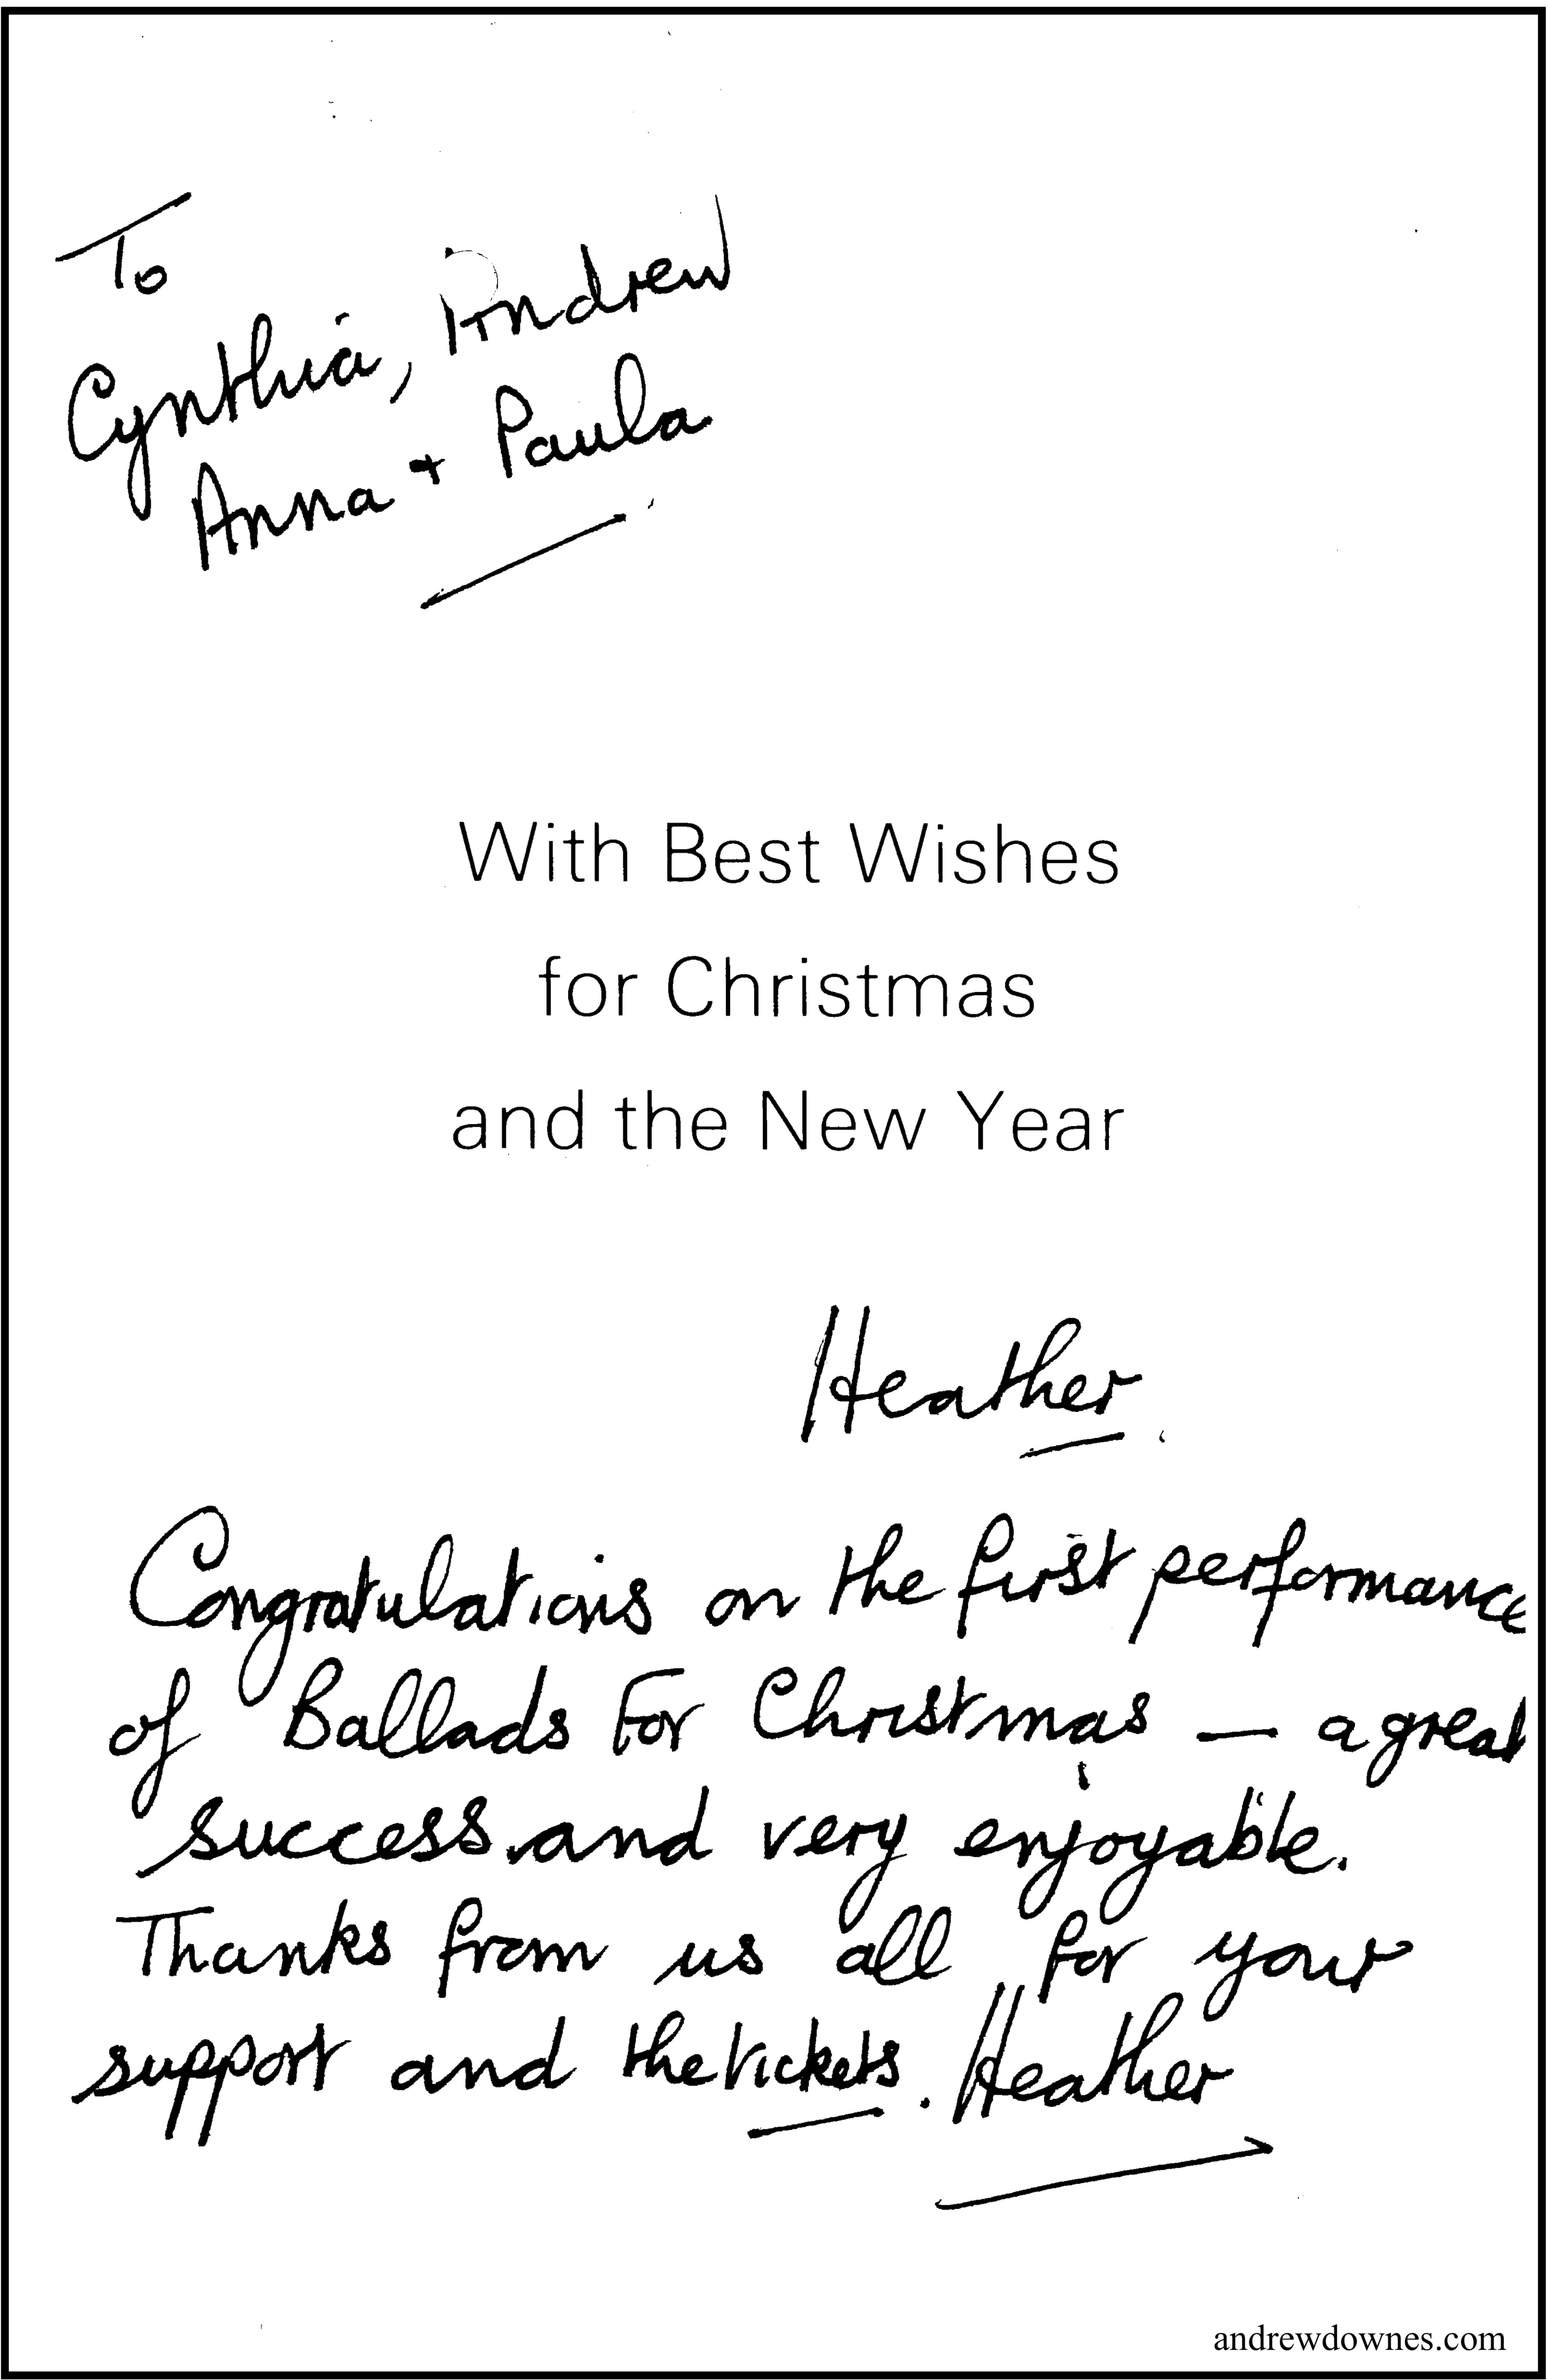 To
Cynthia, Andrew
Anna + Paula
With Best Wishes
for Christmas
and the New Year
Heather.
Congratulations on the first performance
of Ballads For Christmas — a great
success and very enjoyable.
Thanks from us all for your
support and the tickets. Heather
andrewdownes.com